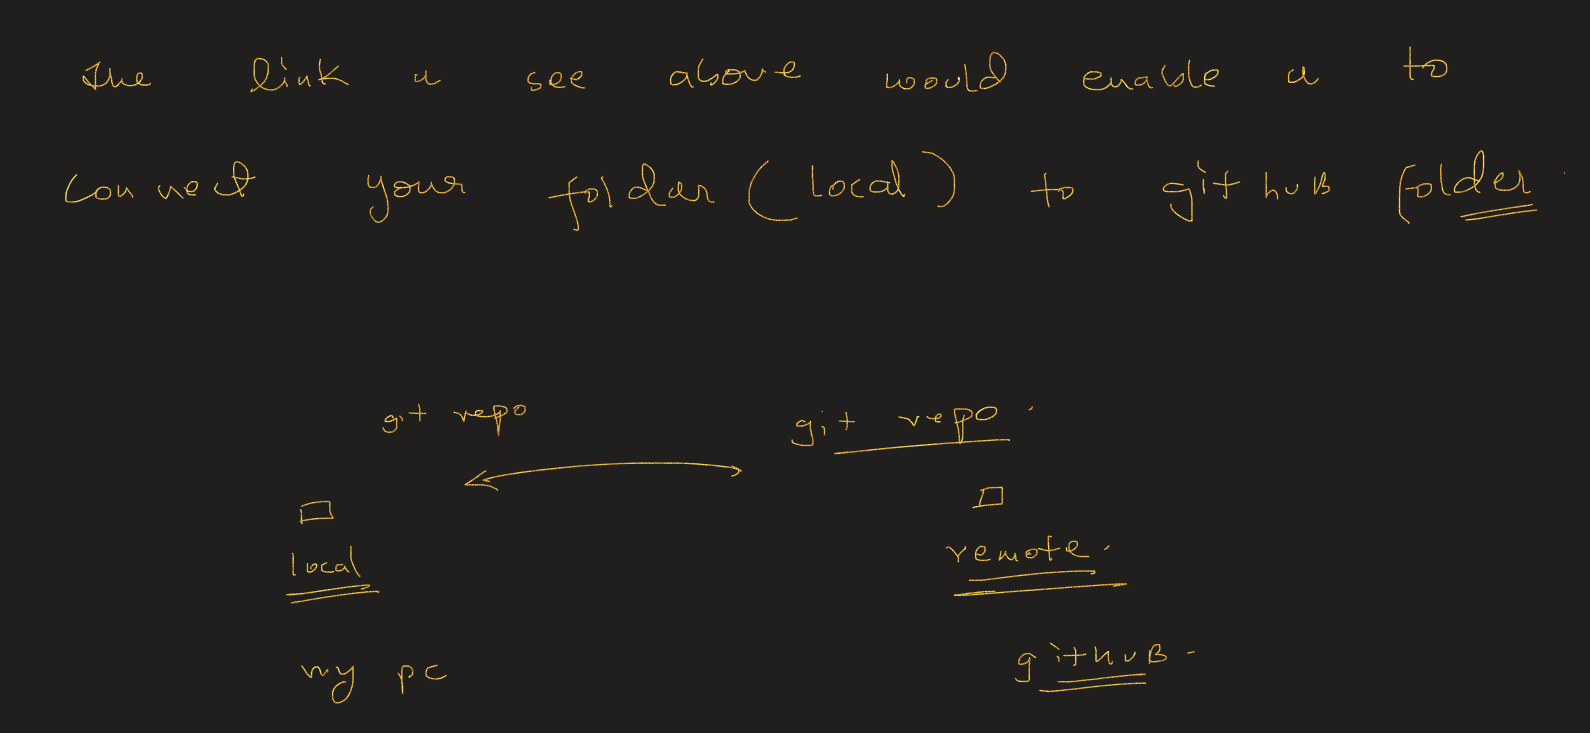 The link u see above would enable u to
connect your folder (local) to githuB folder.
git repo git repo.
local remote.
my pc githuB.